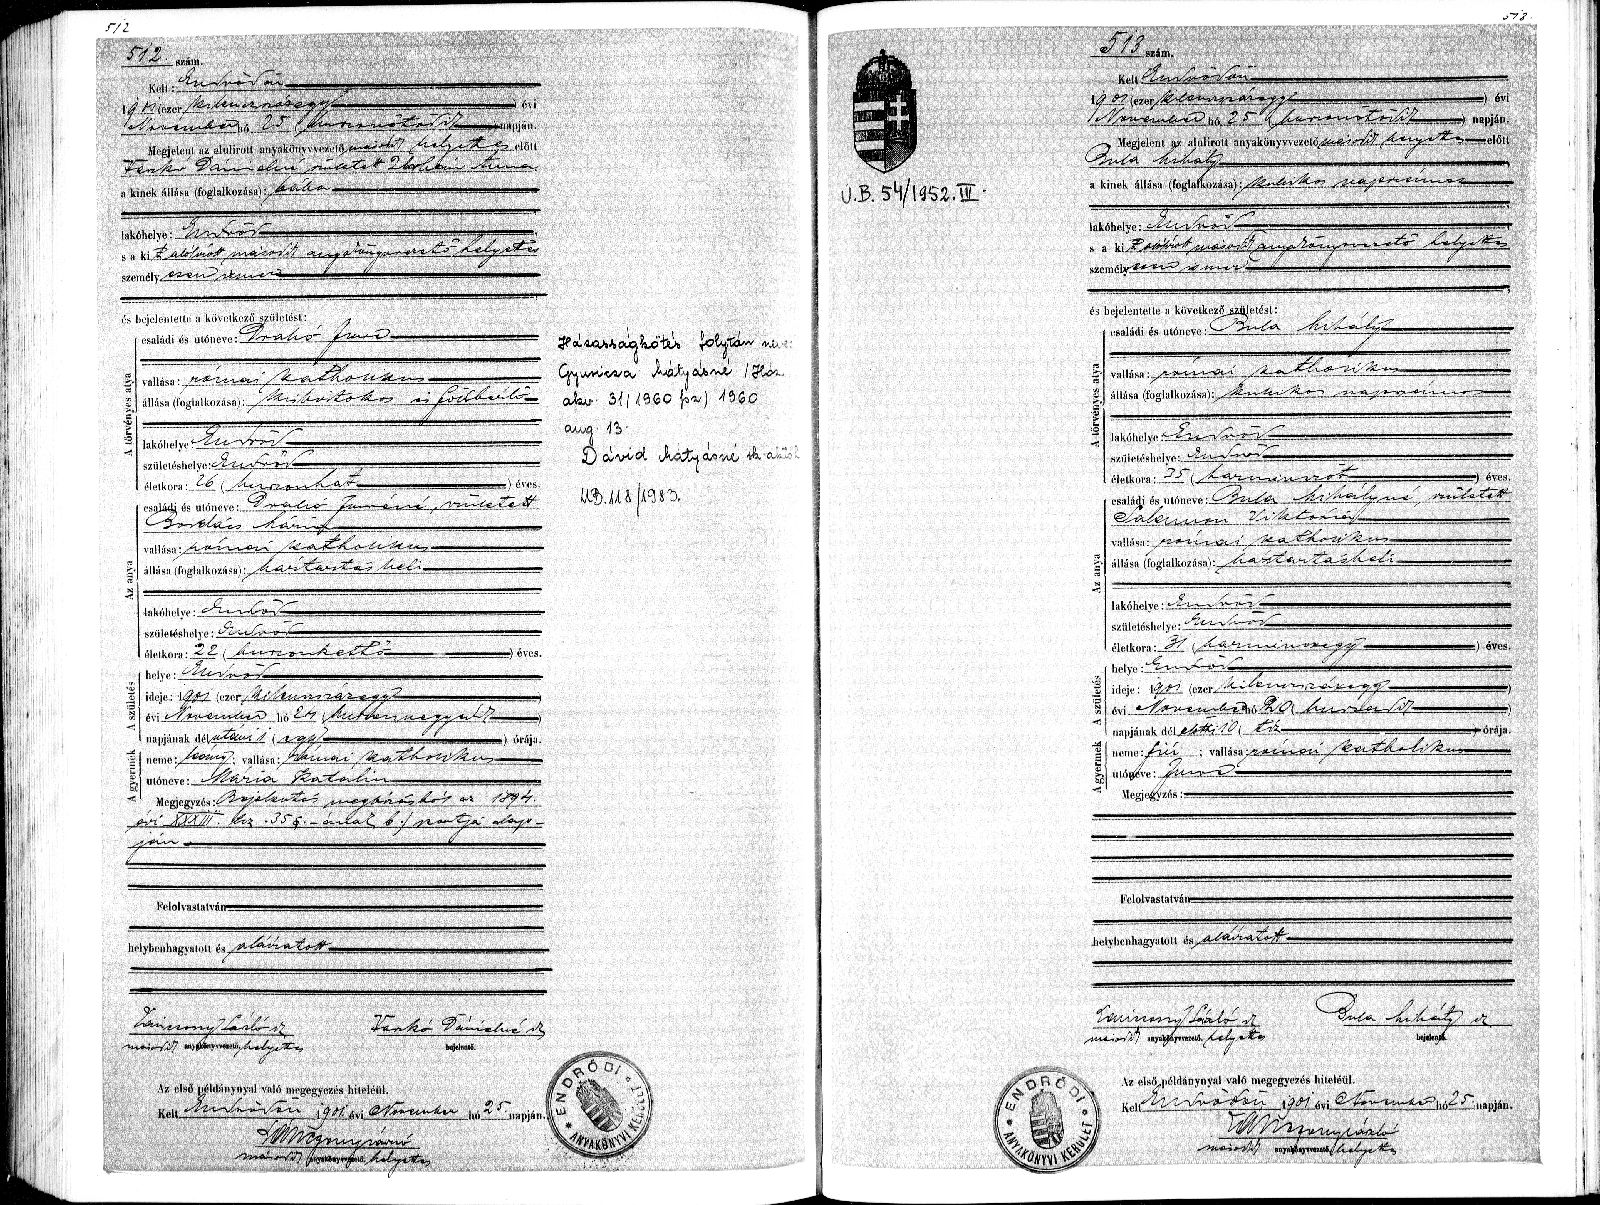 512
512 szám.
Kelt: Endrődön
1901 (ezer kilenczszázegy) évi
November hó 25 (huszonötödik) napján.
Megjelent az alulirott anyakönyvvezető második helyettes előtt
Varkó Dánielné született Anna
a kinek állása (foglalkozása): bába
lakóhelye: Endrőd
s a kit alólirott második anyakönyvvezető helyettes
személyesen ismer
és bejelentette a következő születést:
A törvényes atya
családi és utóneve:
vallása: római katholikus
állása (foglalkozása): kisbirtokos és földbérlő
lakóhelye: Endrőd
születéshelye: Endrőd
életkora: 26 (huszonhat) éves.
Az anya
családi és utóneve: született
Mária
vallása: római katholikus
állása (foglalkozása): háztartásbeli
lakóhelye: Endrőd
születéshelye: Endrőd
életkora: 22 (huszonkettő) éves.
A születés
helye: Endrőd
ideje: 1901 (ezer kilenczszázegy)
évi November hó 24 (huszonnegyedik)
napjának délutáni 1 (egy) órája.
A gyermek
neme: leány; vallása: római katholikus
utóneve: Mária Katalin
Megjegyzés: Bejelentés megbízásból az 1894.
évi XXXIII. tcz. 35 §.-ának b.) pontja alap-
ján
Felolvastatván
helybenhagyatott és aláiratott
László sk
második anyakönyvvezető helyettes
Varkó Dánielné sk
bejelentő.
Az első példánynyal való megegyezés hiteléül.
Kelt Endrődön 1901 évi November hó 25 napján.
második anyakönyvvezető helyettes
ENDRŐDI ANYAKÖNYVI KERÜLET
Házasságkötés folytán neve:
Gyuricza Mátyásné /Ház.
akv. 31/1960 fsz) 1960
aug. 13.
Dávid Mátyásné sk.
UB.118/1983.
513
513 szám.
Kelt Endrődön
1901 (ezer kilenczszázegy) évi
November hó 25 (huszonötödik) napján.
Megjelent az alulirott anyakönyvvezető második helyettes előtt
Bula Mihály
a kinek állása (foglalkozása): kubikos napszámos
lakóhelye: Endrőd
s a kit alólirott második anyakönyvvezető helyettes
személyesen ismer
és bejelentette a következő születést:
A törvényes atya
családi és utóneve: Bula Mihály
vallása: római katholikus
állása (foglalkozása): kubikos napszámos
lakóhelye: Endrőd
születéshelye: Endrőd
életkora: 35 (harminczöt) éves.
Az anya
családi és utóneve: Bula Mihályné, született
Salamon Viktória
vallása: római katholikus
állása (foglalkozása): háztartásbeli
lakóhelye: Endrőd
születéshelye: Endrőd
életkora: 31 (harminczegy) éves.
A születés
helye: Endrőd
ideje: 1901 (ezer kilenczszázegy)
évi November hó 20 (huszadik)
napjának délelőtti 10 (tiz) órája.
A gyermek
neme: fiú; vallása: római katholikus
utóneve: Imre
Megjegyzés:
Felolvastatván
helybenhagyatott és aláiratott
László sk
második anyakönyvvezető helyettes
Bula Mihály sk
bejelentő.
Az első példánynyal való megegyezés hiteléül.
Kelt Endrődön 1901 évi November hó 25 napján.
második anyakönyvvezető helyettes
ENDRŐDI ANYAKÖNYVI KERÜLET
U.B. 54/1952. III.